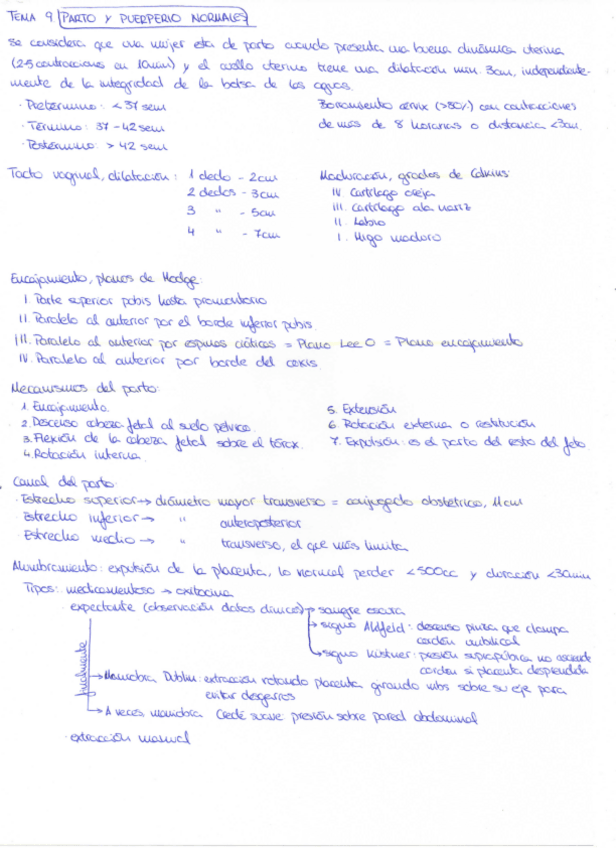 TEMA 9 PARTO Y PUERPERIO NORMALES
Se considera que una mujer esta de parto cuando presenta una buena dinámica uterina
(2-5 contracciones en 10min) y el cuello uterino tiene una dilatación min. 3cm, independiente-
mente de la integridad de la bolsa de las aguas.
· Pretérmino: <37 sem
· Término: 37-42 sem
· Postérmino: > 42 sem
Borramiento cérvix (>80%) con contracciones
de más de 8 horarias o distancia <3cm.
Tacto vaginal, dilatación: 1 dedo - 2cm
2 dedos - 3cm
3 " - 5cm
4 " - 7cm
Maduración, grados de Calkins:
IV. Cartílago oreja
III. Cartílago ala nariz
II. Labio
I. Higo maduro
Encajamiento, planos de Hodge:
I. Parte superior pubis hasta promontorio
II. Paralelo al anterior por el borde inferior pubis.
III. Paralelo al anterior por espinas ciáticas = Plano Lee 0 = Plano encajamiento
IV. Paralelo al anterior por borde del coxis.
Mecanismos del parto:
1. Encajamiento.
2. Descenso cabeza fetal al suelo pélvico.
3. Flexión de la cabeza fetal sobre el tórax.
4. Rotación interna.
5. Extensión
6. Rotación externa o restitución
7. Expulsión: es el parto del resto del feto.
Canal del parto:
· Estrecho superior → diámetro mayor transverso = conjugado obstétrico, 11cm
Estrecho inferior → " anteroposterior
Estrecho medio → " transverso, el que más limita
Alumbramiento: expulsión de la placenta, lo normal perder <500cc y duración <30min
Tipos: · medicamentoso → oxitocina
· expectante (observación datos clínicos) → sangre oscura
→ signo Ahlfeld: descenso pinza que clampa
cordón umbilical
→ signo Küstner: presión suprapúbica no asciende
cordón si placenta desprendida
finalmente
→ Maniobra Dublin: extracción rotando placenta girando mbs sobre su eje para
evitar desgarros
→ A veces, maniobra Credé suave: presión sobre pared abdominal
· extracción manual